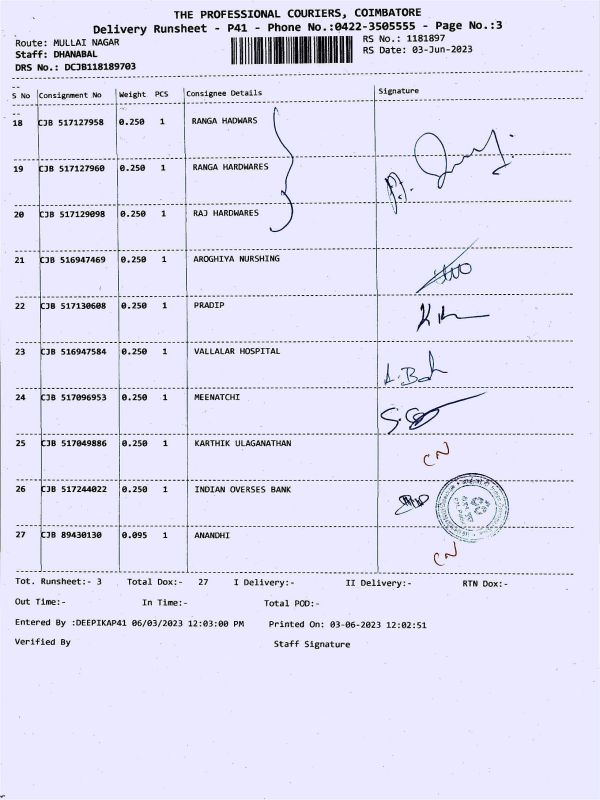 THE PROFESSIONAL COURIERS, COIMBATORE
Delivery Runsheet - P41 - Phone No.:0422-3505555 - Page No.:3
Route: MULLAI NAGAR
RS No.: 1181897
Staff: DHANABAL
RS Date: 03-Jun-2023
DRS No.: DCJB118189703
S No Consignment No Weight PCS Consignee Details Signature
18 CJB 517127958 0.250 1 RANGA HADWARS
19 CJB 517127960 0.250 1 RANGA HARDWARES
20 CJB 517129098 0.250 1 RAJ HARDWARES
21 CJB 516947469 0.250 1 AROGHIYA NURSHING
22 CJB 517130608 0.250 1 PRADIP
23 CJB 516947584 0.250 1 VALLALAR HOSPITAL
24 CJB 517096953 0.250 1 MEENATCHI
25 CJB 517049886 0.250 1 KARTHIK ULAGANATHAN CN
26 CJB 517244022 0.250 1 INDIAN OVERSES BANK
27 CJB 89430130 0.095 1 ANANDHI CN
Tot. Runsheet:- 3 Total Dox:- 27 I Delivery:- II Delivery:- RTN Dox:-
Out Time:- In Time:- Total POD:-
Entered By :DEEPIKAP41 06/03/2023 12:03:00 PM Printed On: 03-06-2023 12:02:51
Verified By Staff Signature